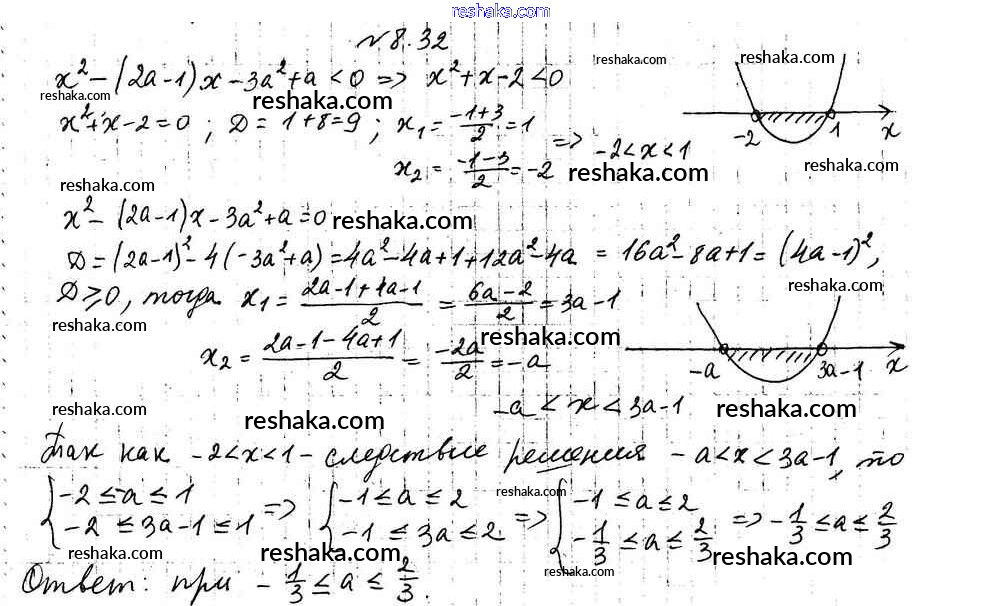 reshaka.com
№8.32
x² - (2a-1)x - 3a² + a < 0 => x² + x - 2 < 0
reshaka.com
reshaka.com
reshaka.com
x² + x - 2 = 0 ; D = 1+8=9 ; x₁ = (-1+3)/2 = 1
-2 1 x
x₂ = (-1-3)/2 = -2 => -2 < x < 1
reshaka.com
reshaka.com
reshaka.com
x² - (2a-1)x - 3a² + a = 0
reshaka.com
D = (2a-1)² - 4(-3a²+a) = 4a² - 4a + 1 + 12a² - 4a = 16a² - 8a + 1 = (4a-1)²,
D ≥ 0, тогда x₁ = (2a-1+4a-1)/2 = (6a-2)/2 = 3a-1
reshaka.com
reshaka.com
x₂ = (2a-1-4a+1)/2 = -2a/2 = -a
reshaka.com
-a 3a-1 x
-a < x < 3a-1
reshaka.com
reshaka.com
reshaka.com
Так как -2 < x < 1 - следствие решения -a < x < 3a-1, то
{ -2 ≤ -a ≤ 1 => { -1 ≤ a ≤ 2 => { -1 ≤ a ≤ 2
-2 ≤ 3a-1 ≤ 1 -1 ≤ 3a ≤ 2 -1/3 ≤ a ≤ 2/3 => -1/3 ≤ a ≤ 2/3
reshaka.com
reshaka.com
reshaka.com
reshaka.com
Ответ: при -1/3 ≤ a ≤ 2/3.
reshaka.com